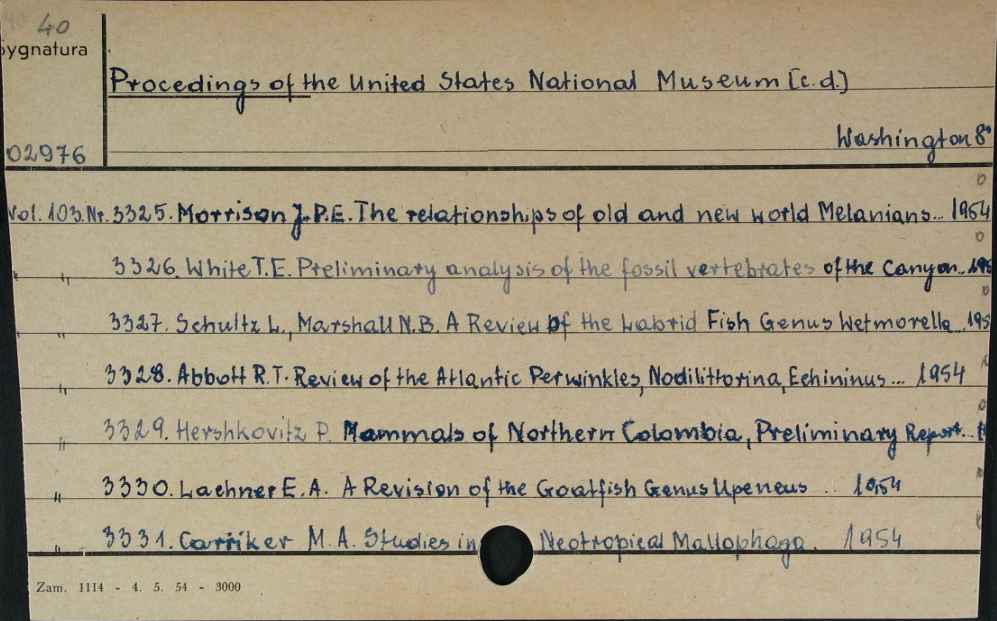 40
ygnatura
Procedings of the United States National Museum [c.d.)
Washington 8°
02976
Vol. 103. Nr. 3325. Morrison J.P.E. The relationships of old and new world Melanians... 1954
" " 3326. White T.E. Preliminary analysis of the fossil vertebrates of the Canyon.. 195
" " 3327. Schultz L., Marshall N.B. A Review of the Labrid Fish Genus Wetmorella .. 195
" " 3328. Abbott R.T. Review of the Atlantic Perwinkles, Nodilittorina, Echininus ... 1954
" 3329. Hershkovitz P. Mammals of Northern Colombia, Preliminary Report...
" 3330. Lachner E.A. A Revision of the Goatfish Genus Upeneus .. 1954
" 3331. Carriker M.A. Studies in Neotropical Mallophaga. 1954
Zam. 1114 - 4. 5. 54 - 3000